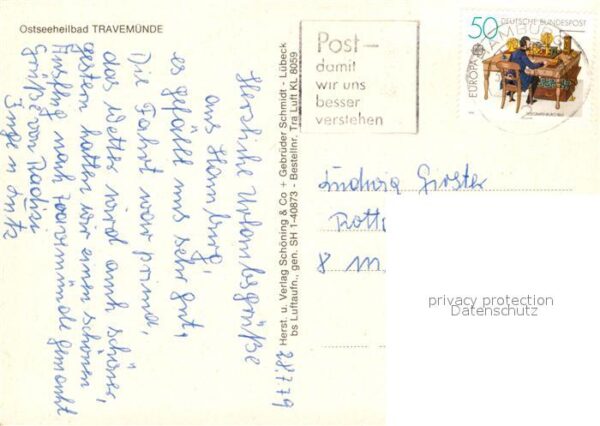 Ostseeheilbad TRAVEMÜNDE
Herzliche Urlaubsgrüße
aus Hamburg,
es gefällt uns sehr gut,
Die Fahrt war prima,
das Wetter wird auch schöner,
gestern hatten wir einen schönen
Ausflug nach Travemünde gemacht.
Grüße von
28.7.79
Herst. u. Verlag Schöning & Co + Gebrüder Schmidt - Lübeck
bs Luftaufn., gen. SH 1-40873 - Bestellnr. Tra Luft KL 8059
Post-
damit
wir uns
besser
verstehen
50 DEUTSCHE BUNDESPOST
EUROPA
HAMBURG
Ludwig
8 M
privacy protection
Datenschutz